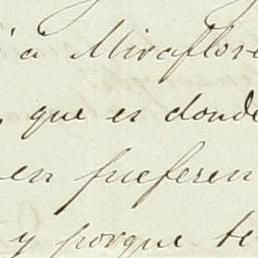 á Miraflore
, que es donde
en fueferen
y porque te